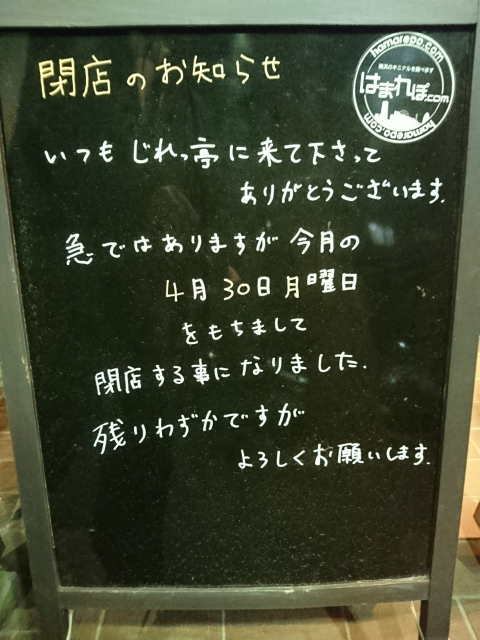 閉店のお知らせ
hamarepo.com
横浜のキニナルを調べます
はまれぽ.com
hamarepo.com
いつもじれっ亭に来て下さって
ありがとうございます.
急ではありますが今月の
4月30日月曜日
をもちまして
閉店する事になりました.
残りわずかですが
よろしくお願いします.